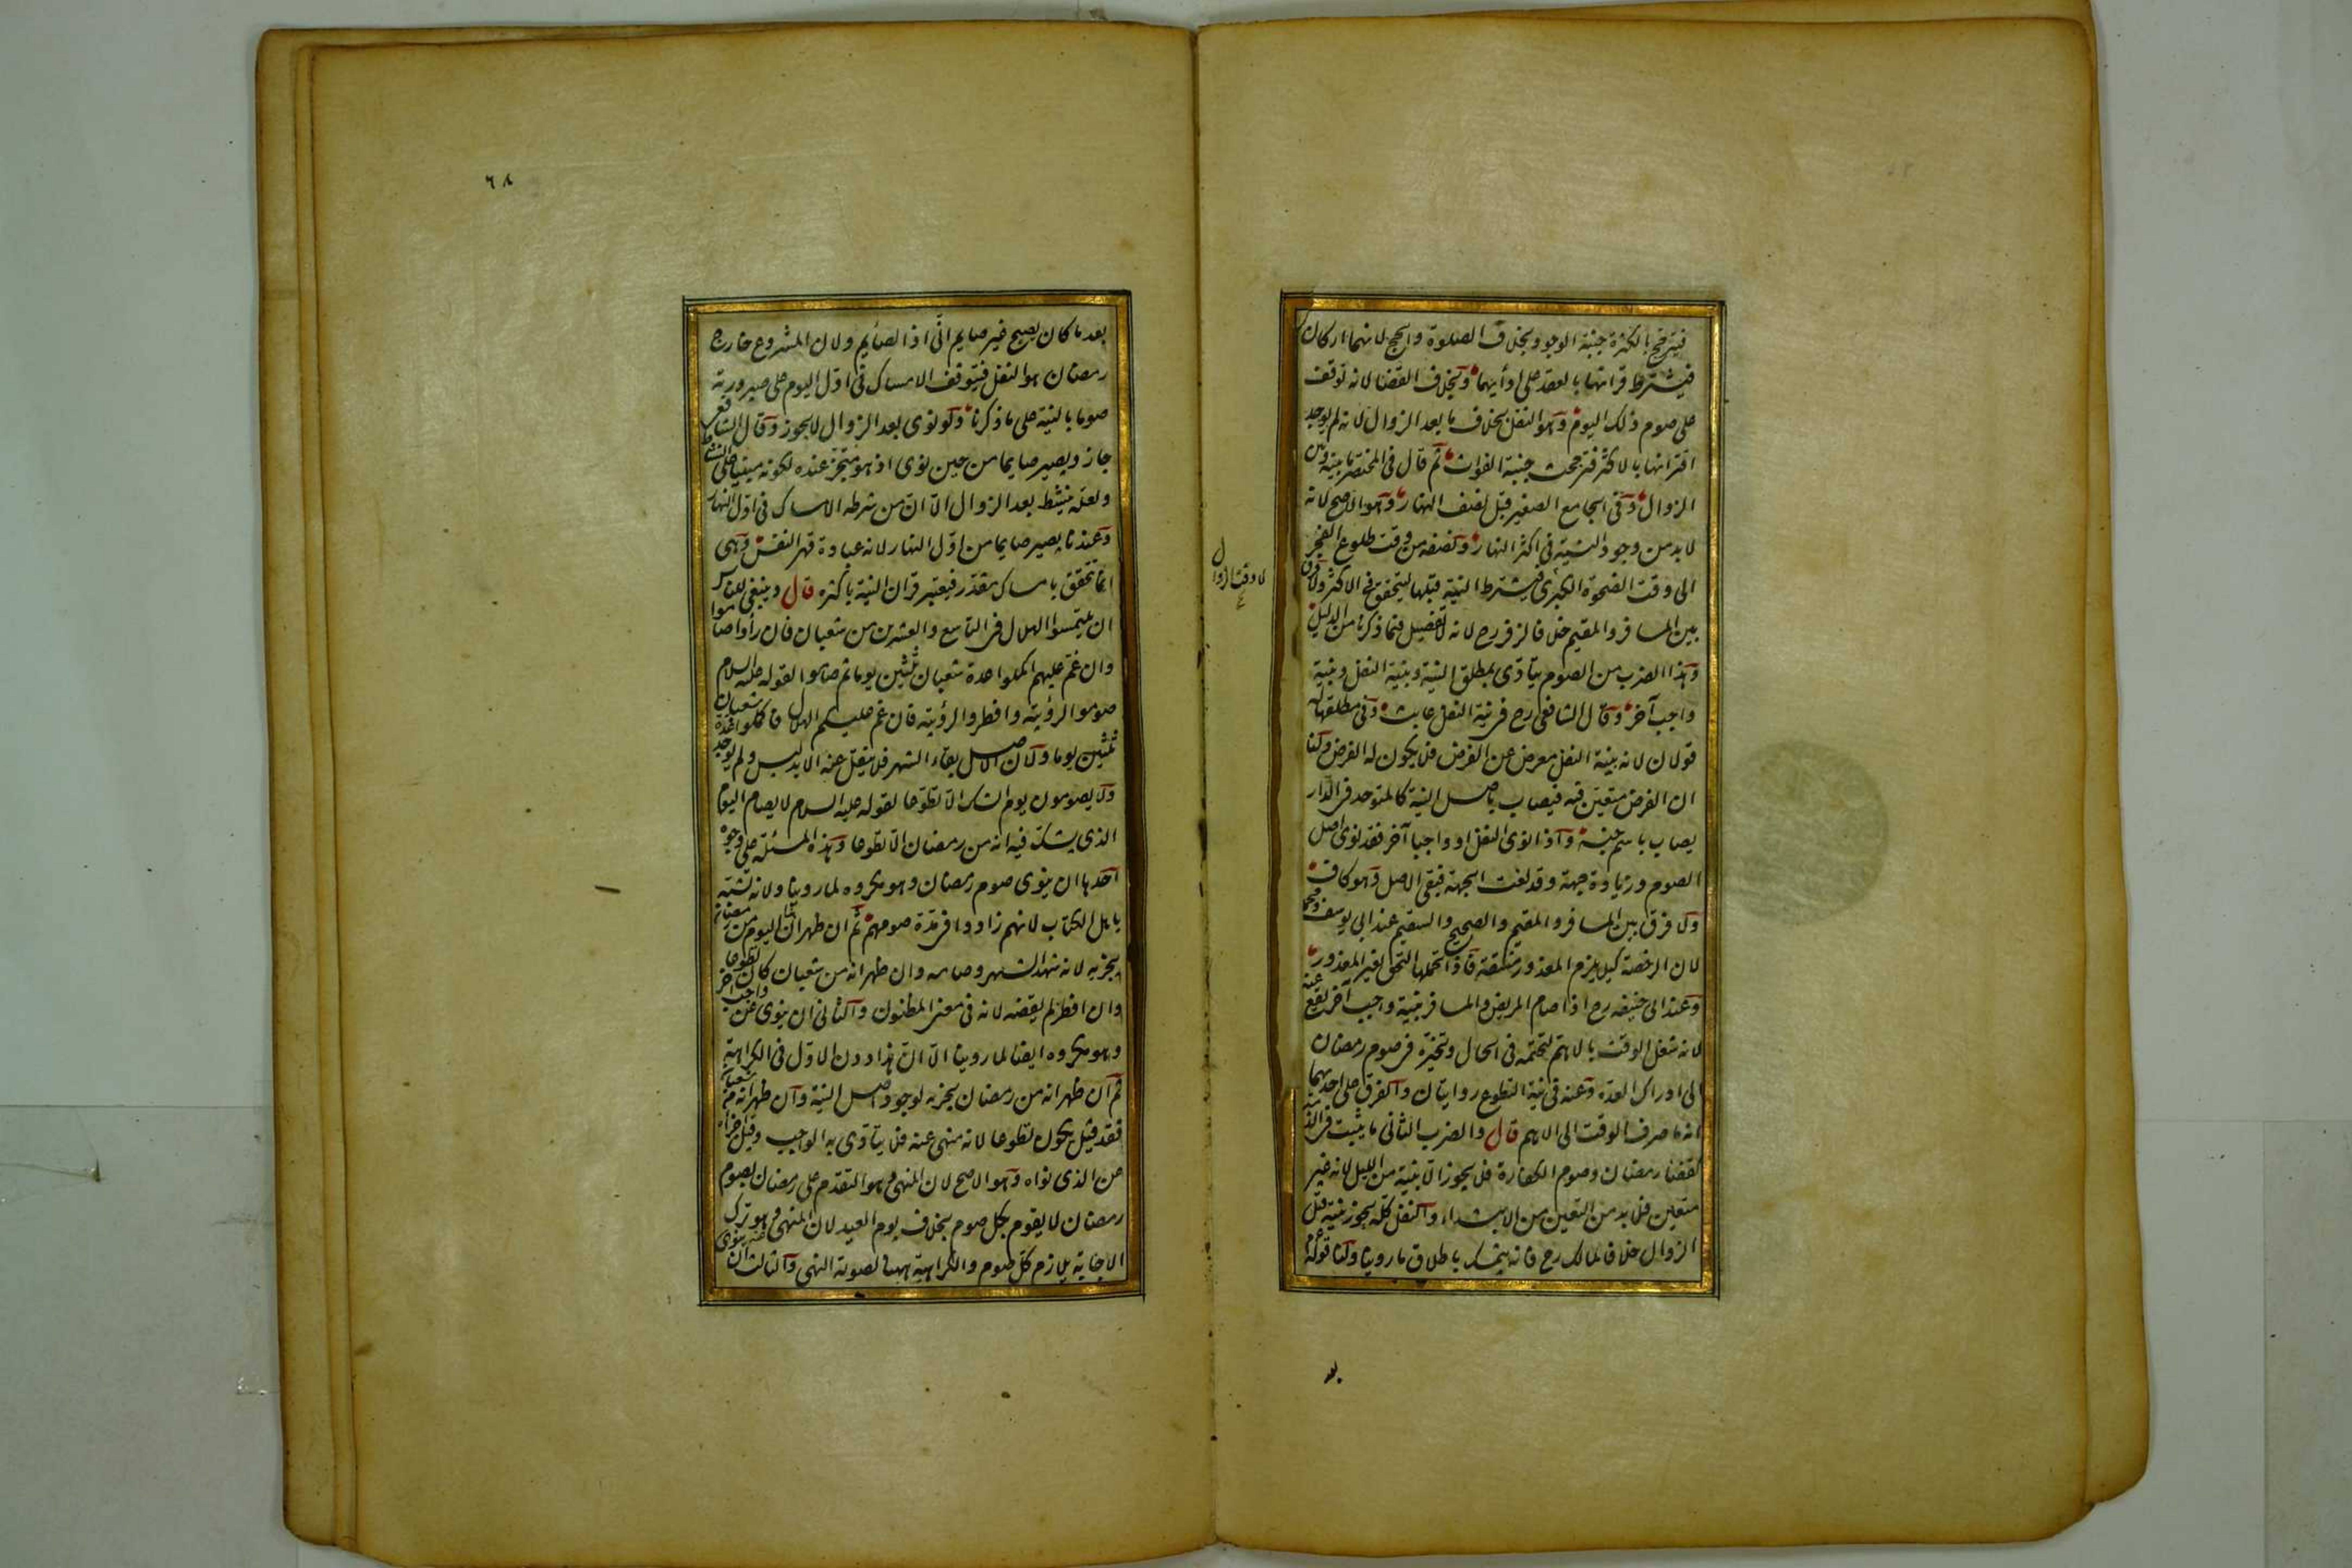 فيترجح بالكثرة جنبة الوجود بخلاف الصلوة والحج لانهما اركان
فيشترط قرانها بالعقد على ادائهما وبخلاف القضا لانه توقف
على صوم ذلك اليوم وهو النفل بخلاف ما بعد الزوال لانه لم يوجد
اقترانها بالاكثر فترجحت جنبة الفوات ثم قال فى المختصر ما بينه وبين
الزوال وفى الجامع الصغير قبل نصف النهار وهو الاصح لانه
لا بد من وجود النية فى اكثر النهار ونصفه من وقت طلوع الفجر
الى وقت الضحوة الكبرى فيشترط النية قبلها ليتحقق فى الاكثر ولا فرق
لا وقت الزوال
بين المسافر والمقيم خلافا لزفر رح لانه لا تفصيل فيما ذكرنا من الدليل
وهذا الضرب من الصوم يتادى بمطلق النية وبنية النفل وبنية
واجب آخر وقال الشافعى رح فى نية النفل عابث وفى مطلقها له
قولان لانه بنية النفل معرض عن الفرض فلا يكون له الفرض ولنا
ان الفرض متعين فيه فيصاب باصل النية كالمتوحد فى الدار
يصاب باسم جنسه واذا نوى النفل او واجبا آخر فقد نوى اصل
الصوم وزيادة جهة وقد لغت الجهة فبقى الاصل وهو كاف
ولا فرق بين المسافر والمقيم والصحيح والسقيم عند ابى يوسف ومحمد
لان الرخصة كيلا يلزم المعذور مشقة فاذا تحملها التحق بغير المعذور
وعند ابى حنيفه رح اذا صام المريض والمسافر بنية واجب آخر يقع عنه
لانه شغل الوقت بالاهم لتحتمه فى الحال وتخيره فى صوم رمضان
الى ادراك العدة وعنه فى نية التطوع روايتان والفرق على احديهما
انه ما صرف الوقت الى الاهم قال والضرب الثانى ما يثبت فى الذمة
كقضا رمضان وصوم الكفارة فلا يجوز الا بنية من الليل لانه غير
متعين فلا بد من التعين من الابتداء والنفل كله يجوز بنية قبل
الزوال خلافا لمالك رح فانه يتمسك باطلاق ما روينا ولنا قوله
بعد
٦٨
بعد ما كان يصبح غير صايم انى اذا لصائم ولان المشروع خارج
رمضان هو النفل فيتوقف الامساك فى اول اليوم على صيرورته
صوما بالنية على ما ذكرنا ولو نوى بعد الزوال لا يجوز وقال الشافعى
جاز ويصير صايما من حين نوى اذ هو متجز عنده لكونه مبنيا على النشاط
ولعله ينشط بعد الزوال الا ان من شرطه الامساك فى اول النهار
وعندنا يصير صايما من اول النهار لانه عبادة قهر النفس وهى
انما تتحقق بامساك مقدر فيعتبر قران النية باكثره قال وينبغى للناس
ان يلتمسوا الهلال فى التاسع والعشرين من شعبان فان رأوا صاموا
وان غم عليهم اكملوا عدة شعبان ثلثين يوما ثم صاموا لقوله عليه السلام
صوموا لرؤيته وافطروا لرؤيته فان غم عليكم الهلال فاكملوا عدة شعبان
ثلثين يوما ولان الاصل بقاء الشهر فلا ينقل عنه الا بدليل ولم يوجد
ولا يصومون يوم الشك الا تطوعا لقوله عليه السلام لا يصام اليوم
الذى يشك فيه انه من رمضان الا تطوعا وهذه المسئلة على وجوه
احدها ان ينوى صوم رمضان وهو مكروه لما روينا ولانه تشبه
باهل الكتاب لانهم زادوا فى مدة صومهم ثم ان ظهر ان اليوم من رمضان
يجزيه لانه شهد الشهر وصامه وان ظهر انه من شعبان كان تطوعا
وان افطر لم يقضه لانه فى معنى المظنون والثانى ان ينوى عن واجب آخر
وهو مكروه ايضا لما روينا الا ان هذا دون الاول فى الكراهة
ثم ان ظهر انه من رمضان يجزيه لوجود اصل النية وان ظهر انه من شعبان
فقد قيل يكون تطوعا لانه منهى عنه فلا يتادى به الواجب وقيل اجزاه
عن الذى نواه وهو الاصح لان المنهى وهو التقدم على رمضان بصوم
رمضان لا يقوم بكل صوم بخلاف يوم العيد لان المنهى وهو ترك
الاجابة يلازم كل صوم والكراهية ههنا لصورة النهى والثالث ان ينوى